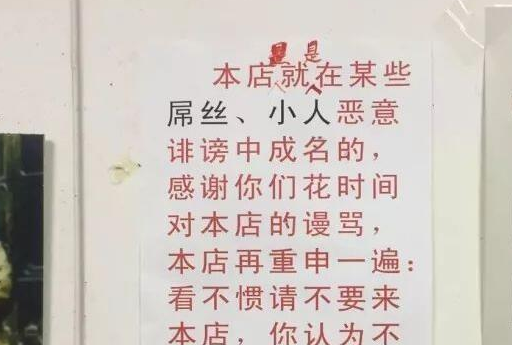 是
本店就在某些
屌丝、小人恶意
诽谤中成名的，
感谢你们花时间
对本店的谩骂，
本店再重申一遍：
看不惯请不要来
本店，你认为不